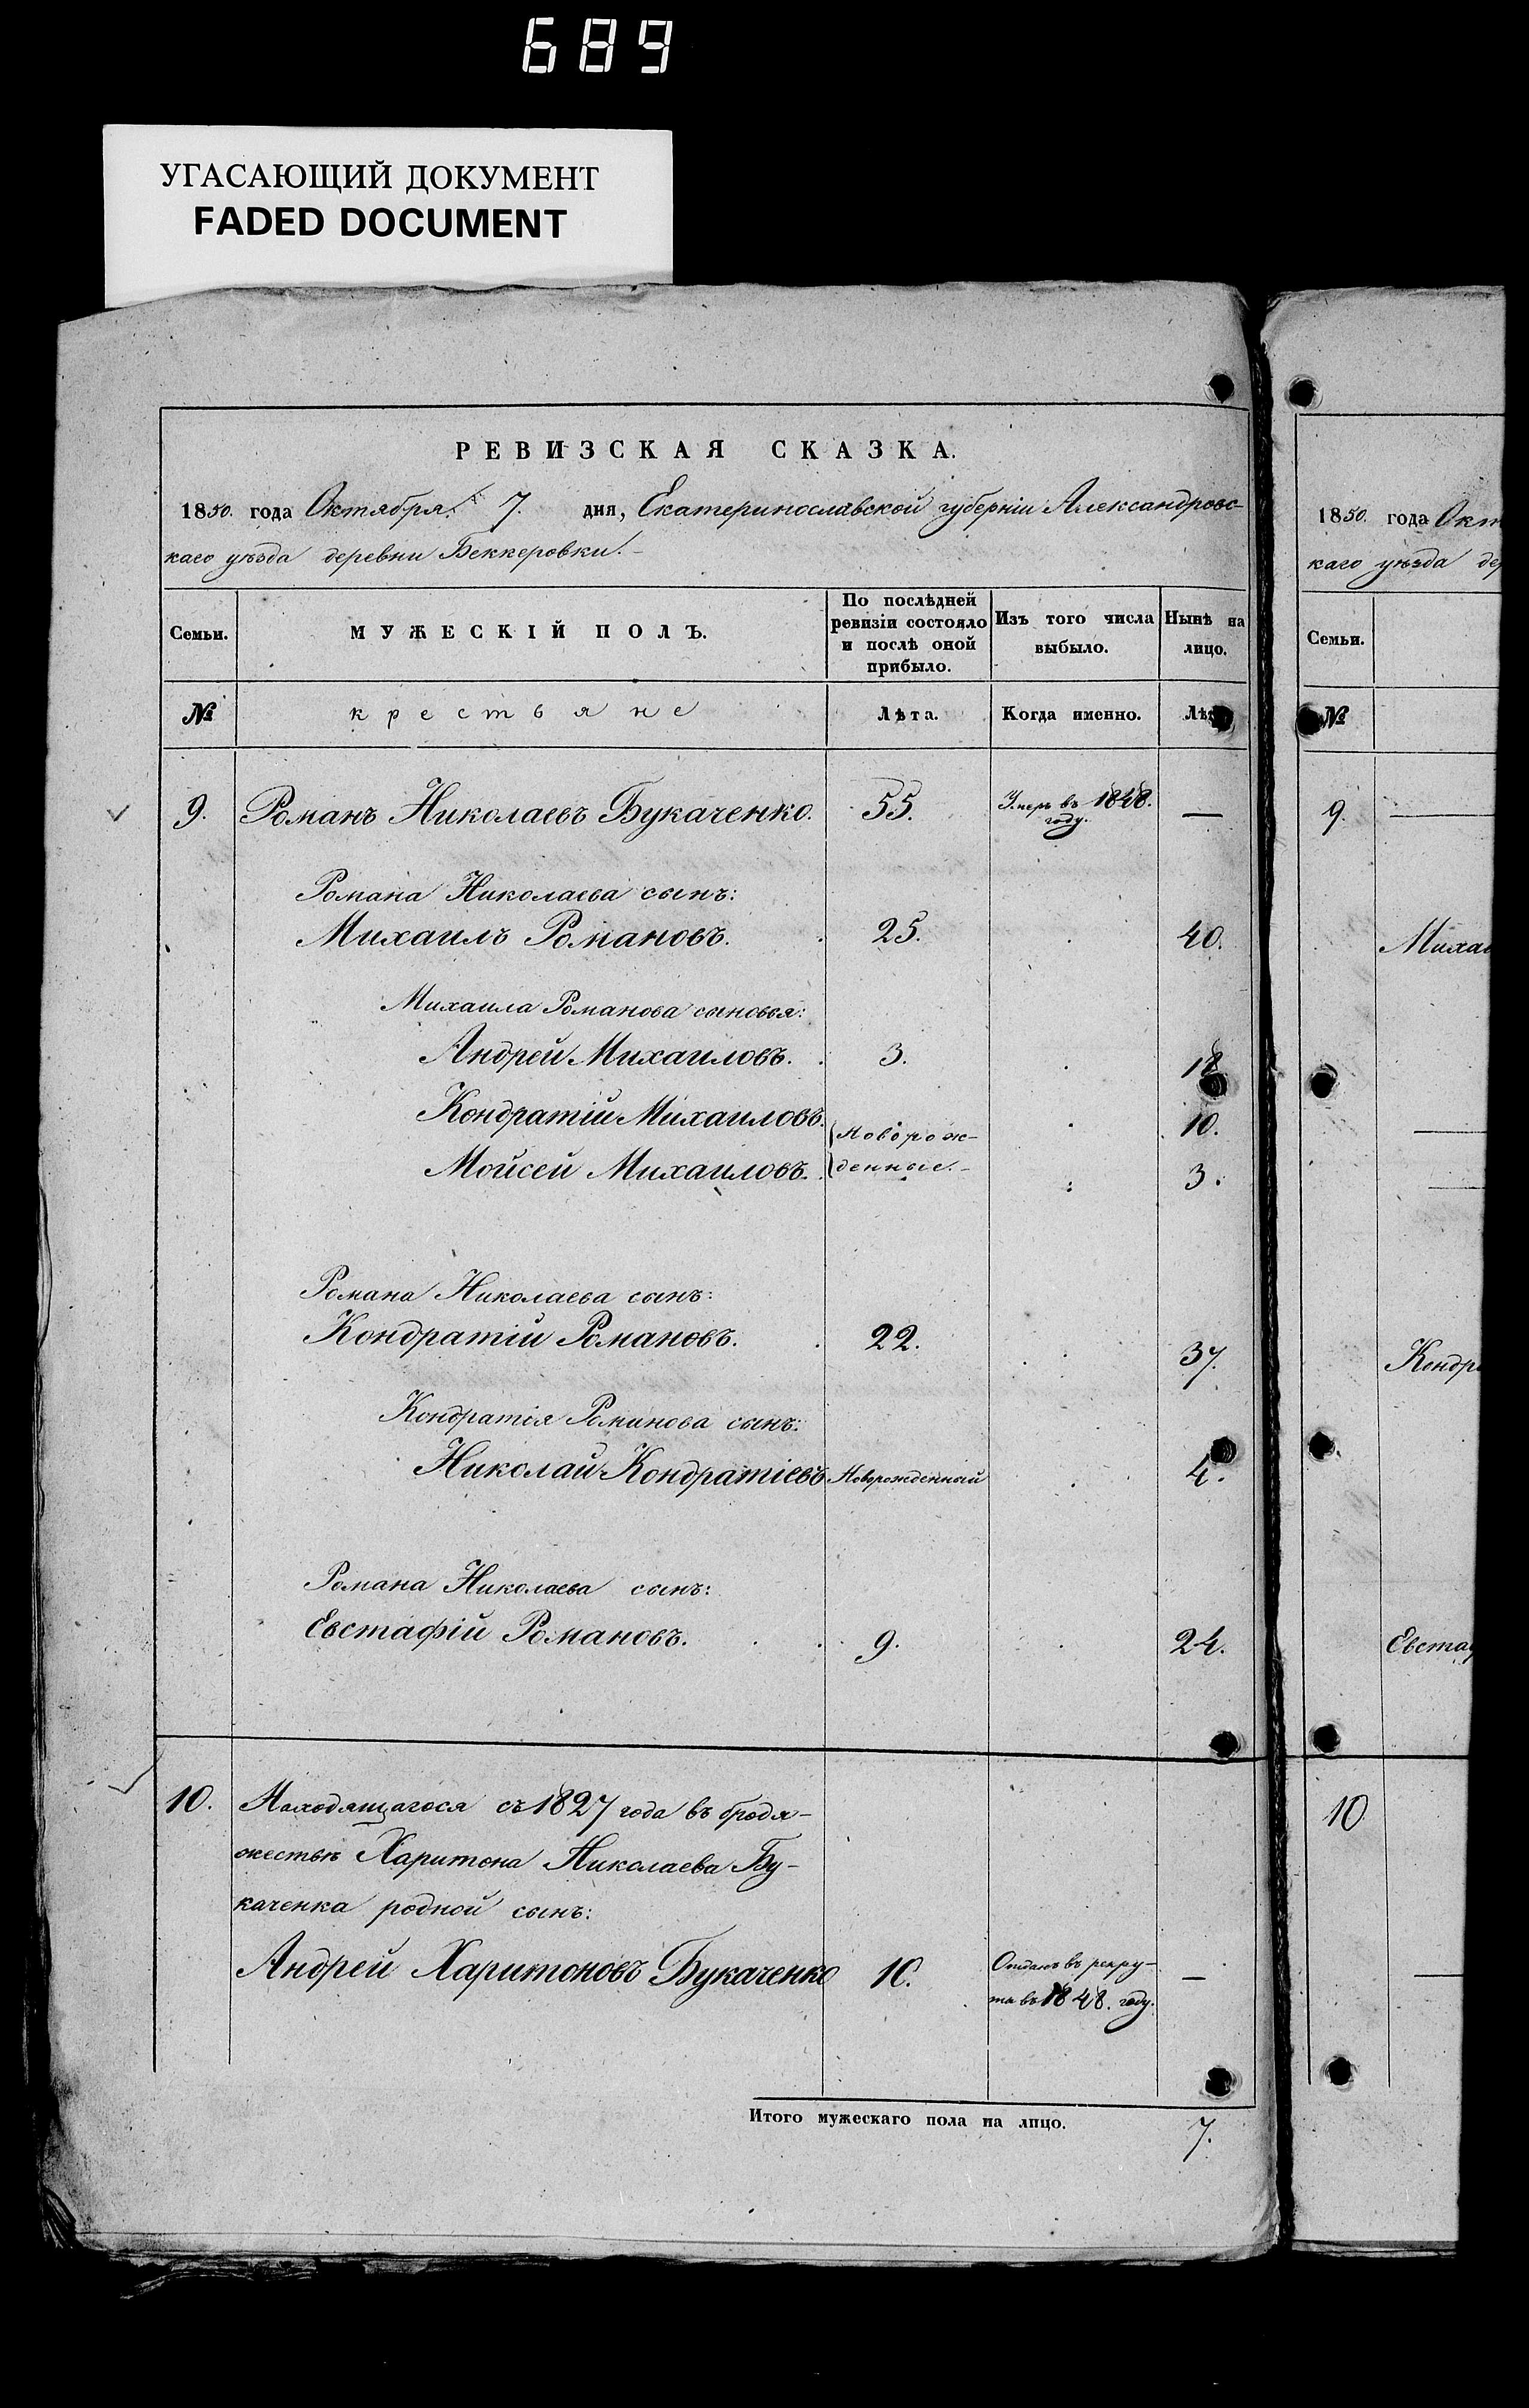 689
УГАСАЮЩИЙ ДОКУМЕНТ
FADED DOCUMENT
РЕВИЗСКАЯ СКАЗКА.
1850. года Октября 7. дня, Екатеринославской губерніи Александровс-
каго уѣзда деревни Беккеровки.
Семьи. МУЖЕСКІЙ ПОЛЪ. По послѣдней ревизіи состояло и послѣ оной прибыло. Изъ того числа выбыло. Нынѣ на лицо.
№ крестьяне Лѣта. Когда именно.
9. Романъ Николаевъ Букаченко. 55. Умеръ въ 1848. году. —
Романа Николаева сынъ:
Михаилъ Романовъ. 25. 40.
Михаила Романова сыновья:
Андрей Михаиловъ. 3. 18
Кондратій Михаиловъ. Новорож- 10.
Мойсей Михаиловъ. денные. 3.
Романа Николаева сынъ:
Кондратій Романовъ. 22. 37.
Кондратія Романова сынъ:
Николай Кондратіевъ Новорожденный 4.
Романа Николаева сынъ:
Евстафій Романовъ. 9. 24.
10. Находящагося съ 1827 года въ бродя-
жествѣ Харитона Николаева Бу-
каченка родной сынъ:
Андрей Харитоновъ Букаченко 10. Отданъ въ рекру- —
ты въ 1848. году.
Итого мужескаго пола на лицо. 7.
1850. года Окт
каго уѣзда де
Семьи.
№
9.
Миха
Кондр
Евста
10